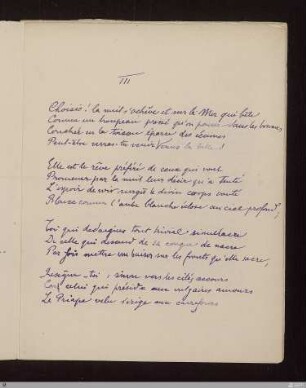 III
Choisis ! la nuit s'achève et sur la Mer qui bêle
Comme un troupeau pressé qu'on pousse dans les brumes
Couchée en la toison éparse des écumes
Peut-être verras-tu venir la belle !
Elle est le rêve préféré de ceux qui vont
Promener par la nuit leur désir qu'a tenté
L'espoir de voir surgir le divin corps
Blanc comme l'aube blanche éclose au ciel profond,
Toi qui dédaignes tout rival simulacre
De celle qui descend de sa conque de nacre
Par fois mettre un baiser sur les fronts qu'elle sacre,
toi ; vers les cités
Car celui qui préside aux vulgaires amours
Le Priape velu s'érige aux carrefours